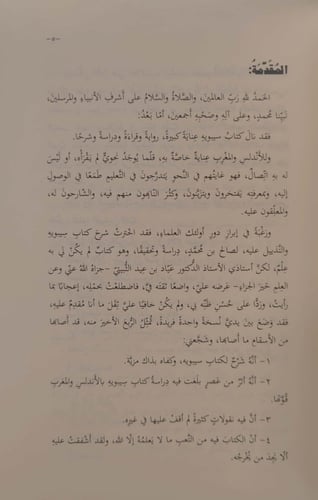 -٥-
المُقدِّمَةُ:
الحَمدُ للهِ رَبِّ العالمِينَ، والصَّلاةُ والسَّلامُ على أشرَفِ الأنبياءِ والمرسَلينَ،
نَبِيِّنا مُحمدٍ، وعلى آلِهِ وصَحْبِهِ أجمَعِينَ، أمَّا بَعْدُ:
فقد نالَ كتابُ سيبويهِ عِنايةً كَبيرةً، روايةً وقِراءةً ودِراسةً وشَرحًا.
وللأندلُسِ والمغْربِ عِنايةٌ خاصَّةٌ بهِ، فقَلَّما يُوجَدُ نَحويٌّ لم يَقرأْه، أو ليْسَ
له بهِ اتِّصالٌ، فهو غايتُهم في النَّحوِ يتدرَّجونَ في التَّعليمِ طَمَعًا في الوصولِ
إليه، وبمعرفتِه يَفتخِرونَ ويتزيَّنونَ، وكَثُرَ النَّابِهونَ منهم فيه، والشَّارِحونَ له،
والمعلِّقونَ عليه.
ورَغْبةً في إبرازِ دورِ أولئكَ العلماءِ، فقد اخترْتُ شرحَ كتابِ سيبويهِ
والتَّذييلَ عليه، لصالحِ بن مُحمَّدٍ، دِراسةً وتَحقيقًا، وهو كتابٌ لم يَكُنْ لي به
عِلْمٌ، لكنَّ أستاذي الأستاذَ الدُّكتورَ عَيّادَ بن عِيدٍ الثُّبيتيَّ -جزاهُ اللهُ عنِّي وعن
العِلمِ خيرَ الجزاءِ- عَرضَه عليَّ، واضعًا ثقتَه فِيَّ، فاضطلعْتُ بحَملِه، إعجابًا بما
رأيتُ، وردًّا على حُسْنِ ظنِّه بي، ولم يَكُنْ خافيًا عليَّ ثِقَلُ ما أنا مُقدِمٌ عليه،
فقد وَضَعَ بين يديَّ نُسخةً واحدةً فريدةً، تُمثِّلُ الرُّبعَ الأخيرَ منه، قد أصابَها
من الأسقامِ ما أصابَها، وشجَّعني:
١- أنَّه شَرْحٌ لكتابِ سيبويهِ، وكفاه بذاكَ مزيَّةً.
٢- أنَّه أثرٌ من عَصرٍ بلغَت فيه دراسةُ كتابِ سيبويهِ بالأندلسِ والمغربِ
قُوَّتَها.
٣- أنَّ فيه نقولاتٍ كثيرةً لم أقِفْ عليها في غيرِه.
٤- أنَّ الكتابَ فيه من التَّعبِ ما لا يَعلمُهُ إلَّا اللهُ، ولقد أشفقْتُ عليهِ
ألَّا يَجِدَ من يُخْرِجُه.